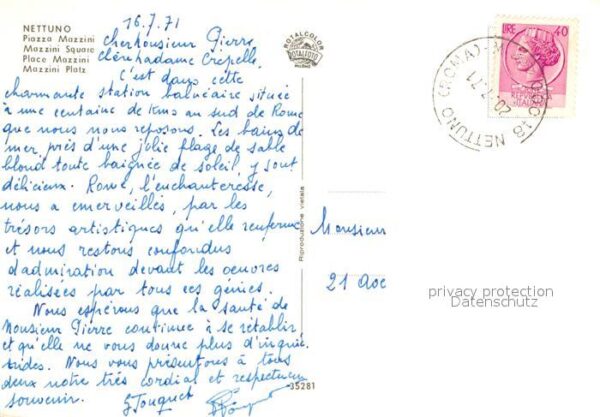 NETTUNO
Piazza Mazzini
Mazzini Square
Place Mazzini
Mazzini Platz
16.7.71
Cher Monsieur Pierre
Chère Madame Crepelle.
C'est dans cette
charmante station balnéaire située
à une centaine de kms au sud de Rome
que nous nous reposons. Les bains de
mer, près d'une jolie plage de sable
blond toute baignée de soleil, y sont
délicieux. Rome, l'enchanteresse,
nous a émerveillés, par les
trésors artistiques qu'elle renferme
et nous restons confondus
d'admiration devant les oeuvres
réalisées par tous ces génies.
Nous espérons que la santé de
Monsieur Pierre continue à se rétablir,
et qu'elle ne vous donne plus d'inquié
tudes. Nous vous présentons à tous
deux notre très cordial et respectueux
souvenir.
G Touquet
ROTALCOLOR
ROTALFOTO
MILANO
Riproduzione vietata
35281
LIRE 40
REPVBBLICA
ITALIANA
NETTUNO (ROMA)
00048
20.7.71
Monsieur
21 Ave
privacy protection
Datenschutz